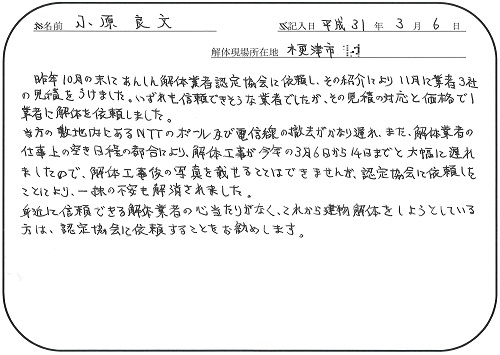 お名前 小原良文 ご記入日 平成 31 年 3 月 6 日
解体現場所在地 木更津市
昨年10月の末にあんしん解体業者認定協会に依頼し、その紹介により11月に業者3社
の見積をうけました。いずれも信頼できそうな業者でしたが、その見積の対応と価格で1
業者に解体を依頼しました。
当方の敷地内にあるNTTのポール及び電信線の撤去がかなり遅れ、また、解体業者の
仕事上の空き日程の都合により、解体工事が今年の3月6日から14日までと大幅に遅れ
ましたので、解体工事後の写真を載せることはできませんが、認定協会に依頼した
ことにより、一抹の不安も解消されました。
身近に信頼できる解体業者の心当たりがなく、これから建物解体をしようとしている
方は、認定協会に依頼することをお勧めします。